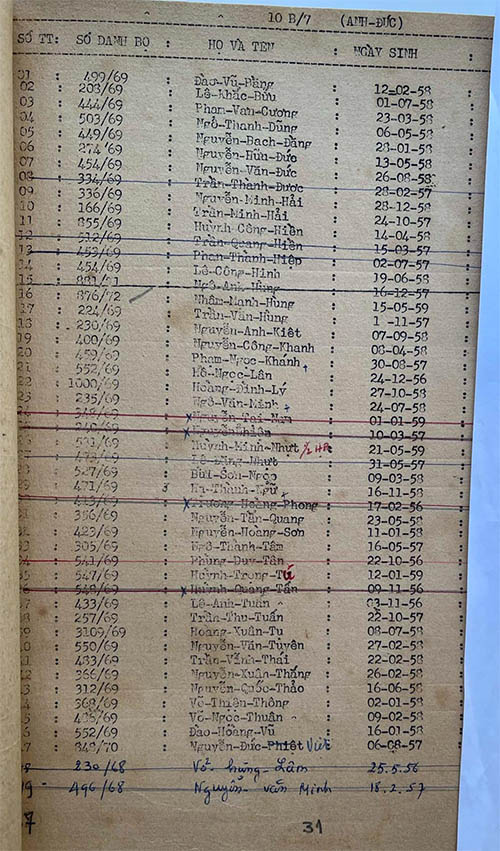 10 B/7 (ANH-ĐỨC)
SỐ TT: SỐ DANH BỘ : HỌ VÀ TÊN : NGÀY SINH
01 : 499/69 : Đào-Vũ-Đằng : 12-02-58
02 : 203/69 : Lê-Khắc-Bửu : 01-07-58
03 : 444/69 : Phạm-Văn-Cương : 23-03-58
04 : 503/69 : Ngô-Thanh-Dũng : 06-05-58
05 : 449/69 : Nguyễn-Bạch-Đằng : 28-01-58
06 : 274/69 : Nguyễn-Hữu-Đức : 13-05-58
07 : 454/69 : Nguyễn-Văn-Đức : 26-08-58
08 : 334/69 : Trần-Thành-Được : 28-02-57
09 : 336/69 : Nguyễn-Minh-Hải : 28-12-58
10 : 166/69 : Trần-Minh-Hải : 24-10-57
11 : 855/69 : Huỳnh-Công-Hiển : 14-04-58
12 : 512/69 : Trần-Quang-Hiền : 15-03-57
13 : 453/69 : Phan-Thanh-Hiệp : 02-07-57
14 : 454/69 : Lê-Công-Hinh : 19-06-58
15 : 881/71 : Ngô-Anh-Hùng : 16-12-57
16 : 876/72 : Nhâm-Mạnh-Hùng : 15-05-59
17 : 224/69 : Trần-Văn-Hùng : 1 -11-57
18 : 230/69 : Nguyễn-Anh-Kiệt : 07-09-58
19 : 400/69 : Nguyễn-Công-Khanh : 08-04-58
20 : 459/69 : Phạm-Ngọc-Khánh : 30-08-57
21 : 552/69 : Hồ-Ngọc-Lân : 24-12-56
22 : 1000/69 : Hoàng-Đình-Lý : 27-10-58
23 : 235/69 : Ngô-Văn-Minh : 24-07-58
24 : 348/69 : x Nguyễn-Tài- : 01-01-59
240/69 : x : 10-03-57
531/69 : Huỳnh-Minh-Nhựt 1/2 HP : 21-05-59
473/69 : Lê-Đăng-Nhựt : 31-05-57
527/69 : Bùi-Sơn-Ngọc : 09-03-58
471/69 : Hạ-Thanh-Ngữ : 16-11-58
413/69 : x Trương-Hoàng-Phong : 17-02-56
356/69 : Nguyễn-Tấn-Quang : 23-05-58
423/69 : Nguyễn-Hoàng-Sơn : 11-01-58
305/69 : Ngô-Thành-Tâm : 16-05-57
541/69 : Phùng-Duy-Tân : 22-10-56
547/69 : Huỳnh-Trọng-Tú : 12-01-59
548/69 : x Huỳnh-Quang-Tấn : 09-11-56
433/69 : Lê-Anh-Tuấn : 03-11-56
257/69 : Trần-Thu-Tuấn : 22-10-57
3109/69 : Hoàng-Xuân-Tu : 08-07-58
550/69 : Nguyễn-Văn-Tuyên : 27-02-58
433/69 : Trần-Vĩnh-Thái : 22-02-58
366/69 : Nguyễn-Xuân-Thắng : 26-02-58
312/69 : Nguyễn-Quốc-Thảo : 16-06-58
368/69 : Võ-Thiện-Thông : 02-01-58
405/69 : Võ-Ngọc-Thuân : 09-02-58
552/69 : Đào-Hoàng-Vũ : 16-01-58
848/70 : Nguyễn-Đức-Phiệt Việt : 06-08-57
230/68 Võ Hùng-Lâm 25.5.56
496/68 Nguyễn văn Minh 18.2.57
31